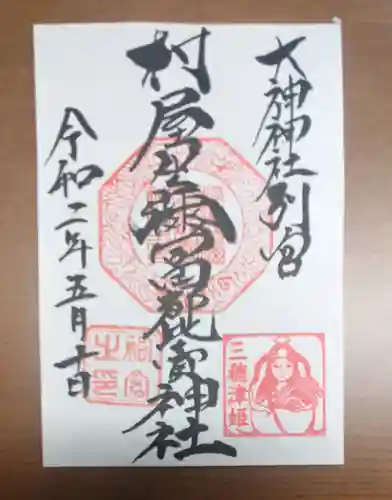 大神神社別宮
村屋坐彌冨都比賣神社
令和二年五月十日
三穂津姫